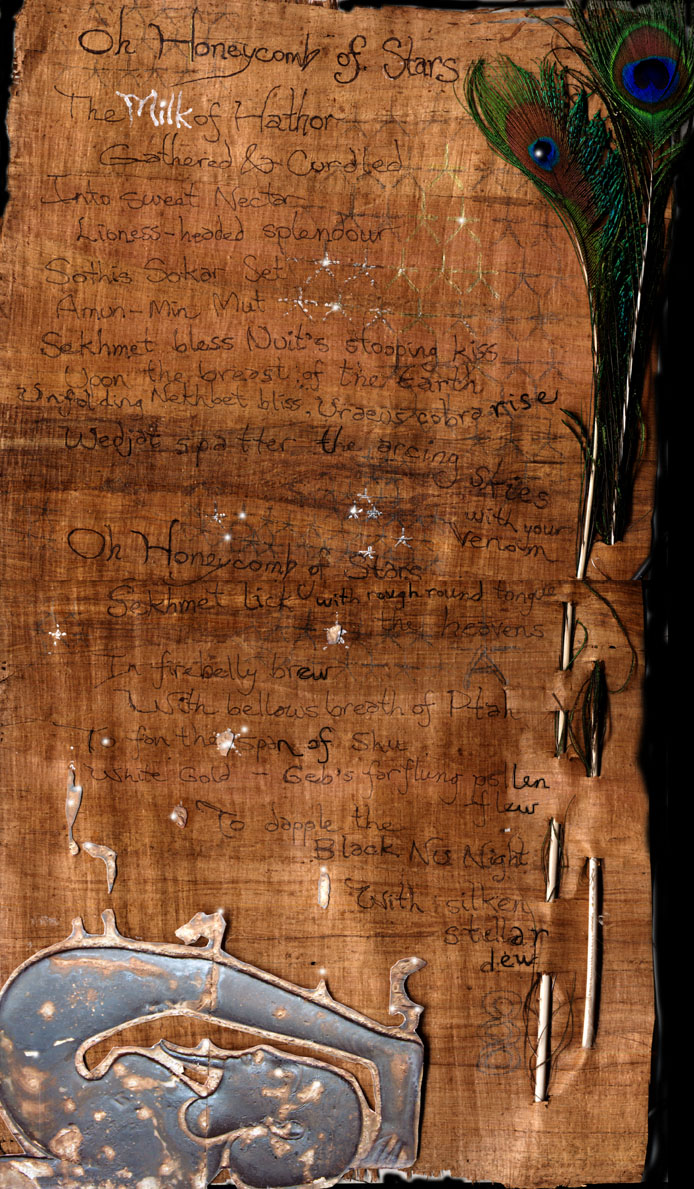 Oh Honeycomb of Stars
The Milk of Hathor
Gathered & Curdled
Into sweet Nectar
Lioness-headed splendour
Sothis Sokar Set
Amun-Min Mut
Sekhmet bless Nuit's stooping kiss
Upon the breast of the Earth
Unfolding Nekhbet bliss, Uraeus cobra rise
Wedjat spatter the arcing
skies
with your
venom
Oh Honeycomb of Stars
Sekhmet lick with rough round tongue
the heavens
In firebelly brew
With bellows breath of Ptah
To fan the span of Shu
White Gold - Geb's farflung pollen
flew
To dapple the
Black Nu Night
With silken
stellar
dew